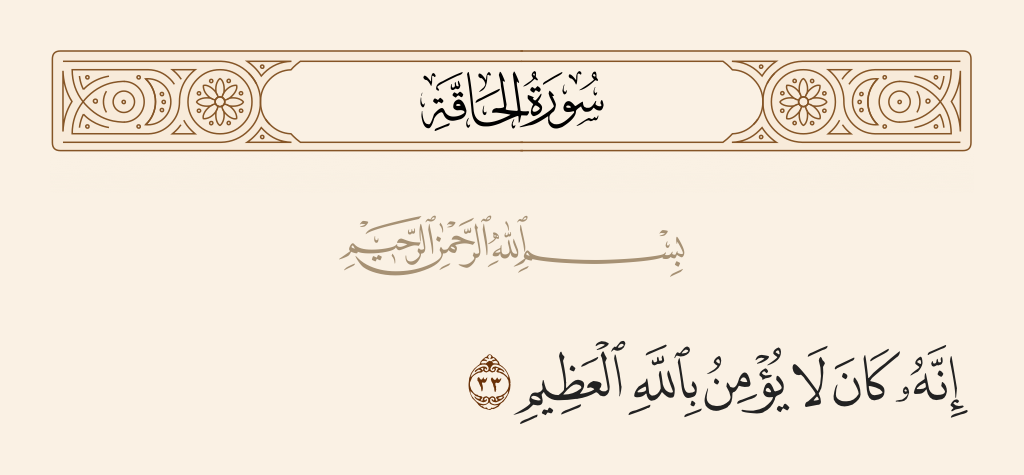 سُورَةُ الحَاقَّةِ
بِسْمِ ٱللَّهِ ٱلرَّحْمَٰنِ ٱلرَّحِيمِ
إِنَّهُۥ كَانَ لَا يُؤْمِنُ بِٱللَّهِ ٱلْعَظِيمِ ٣٣